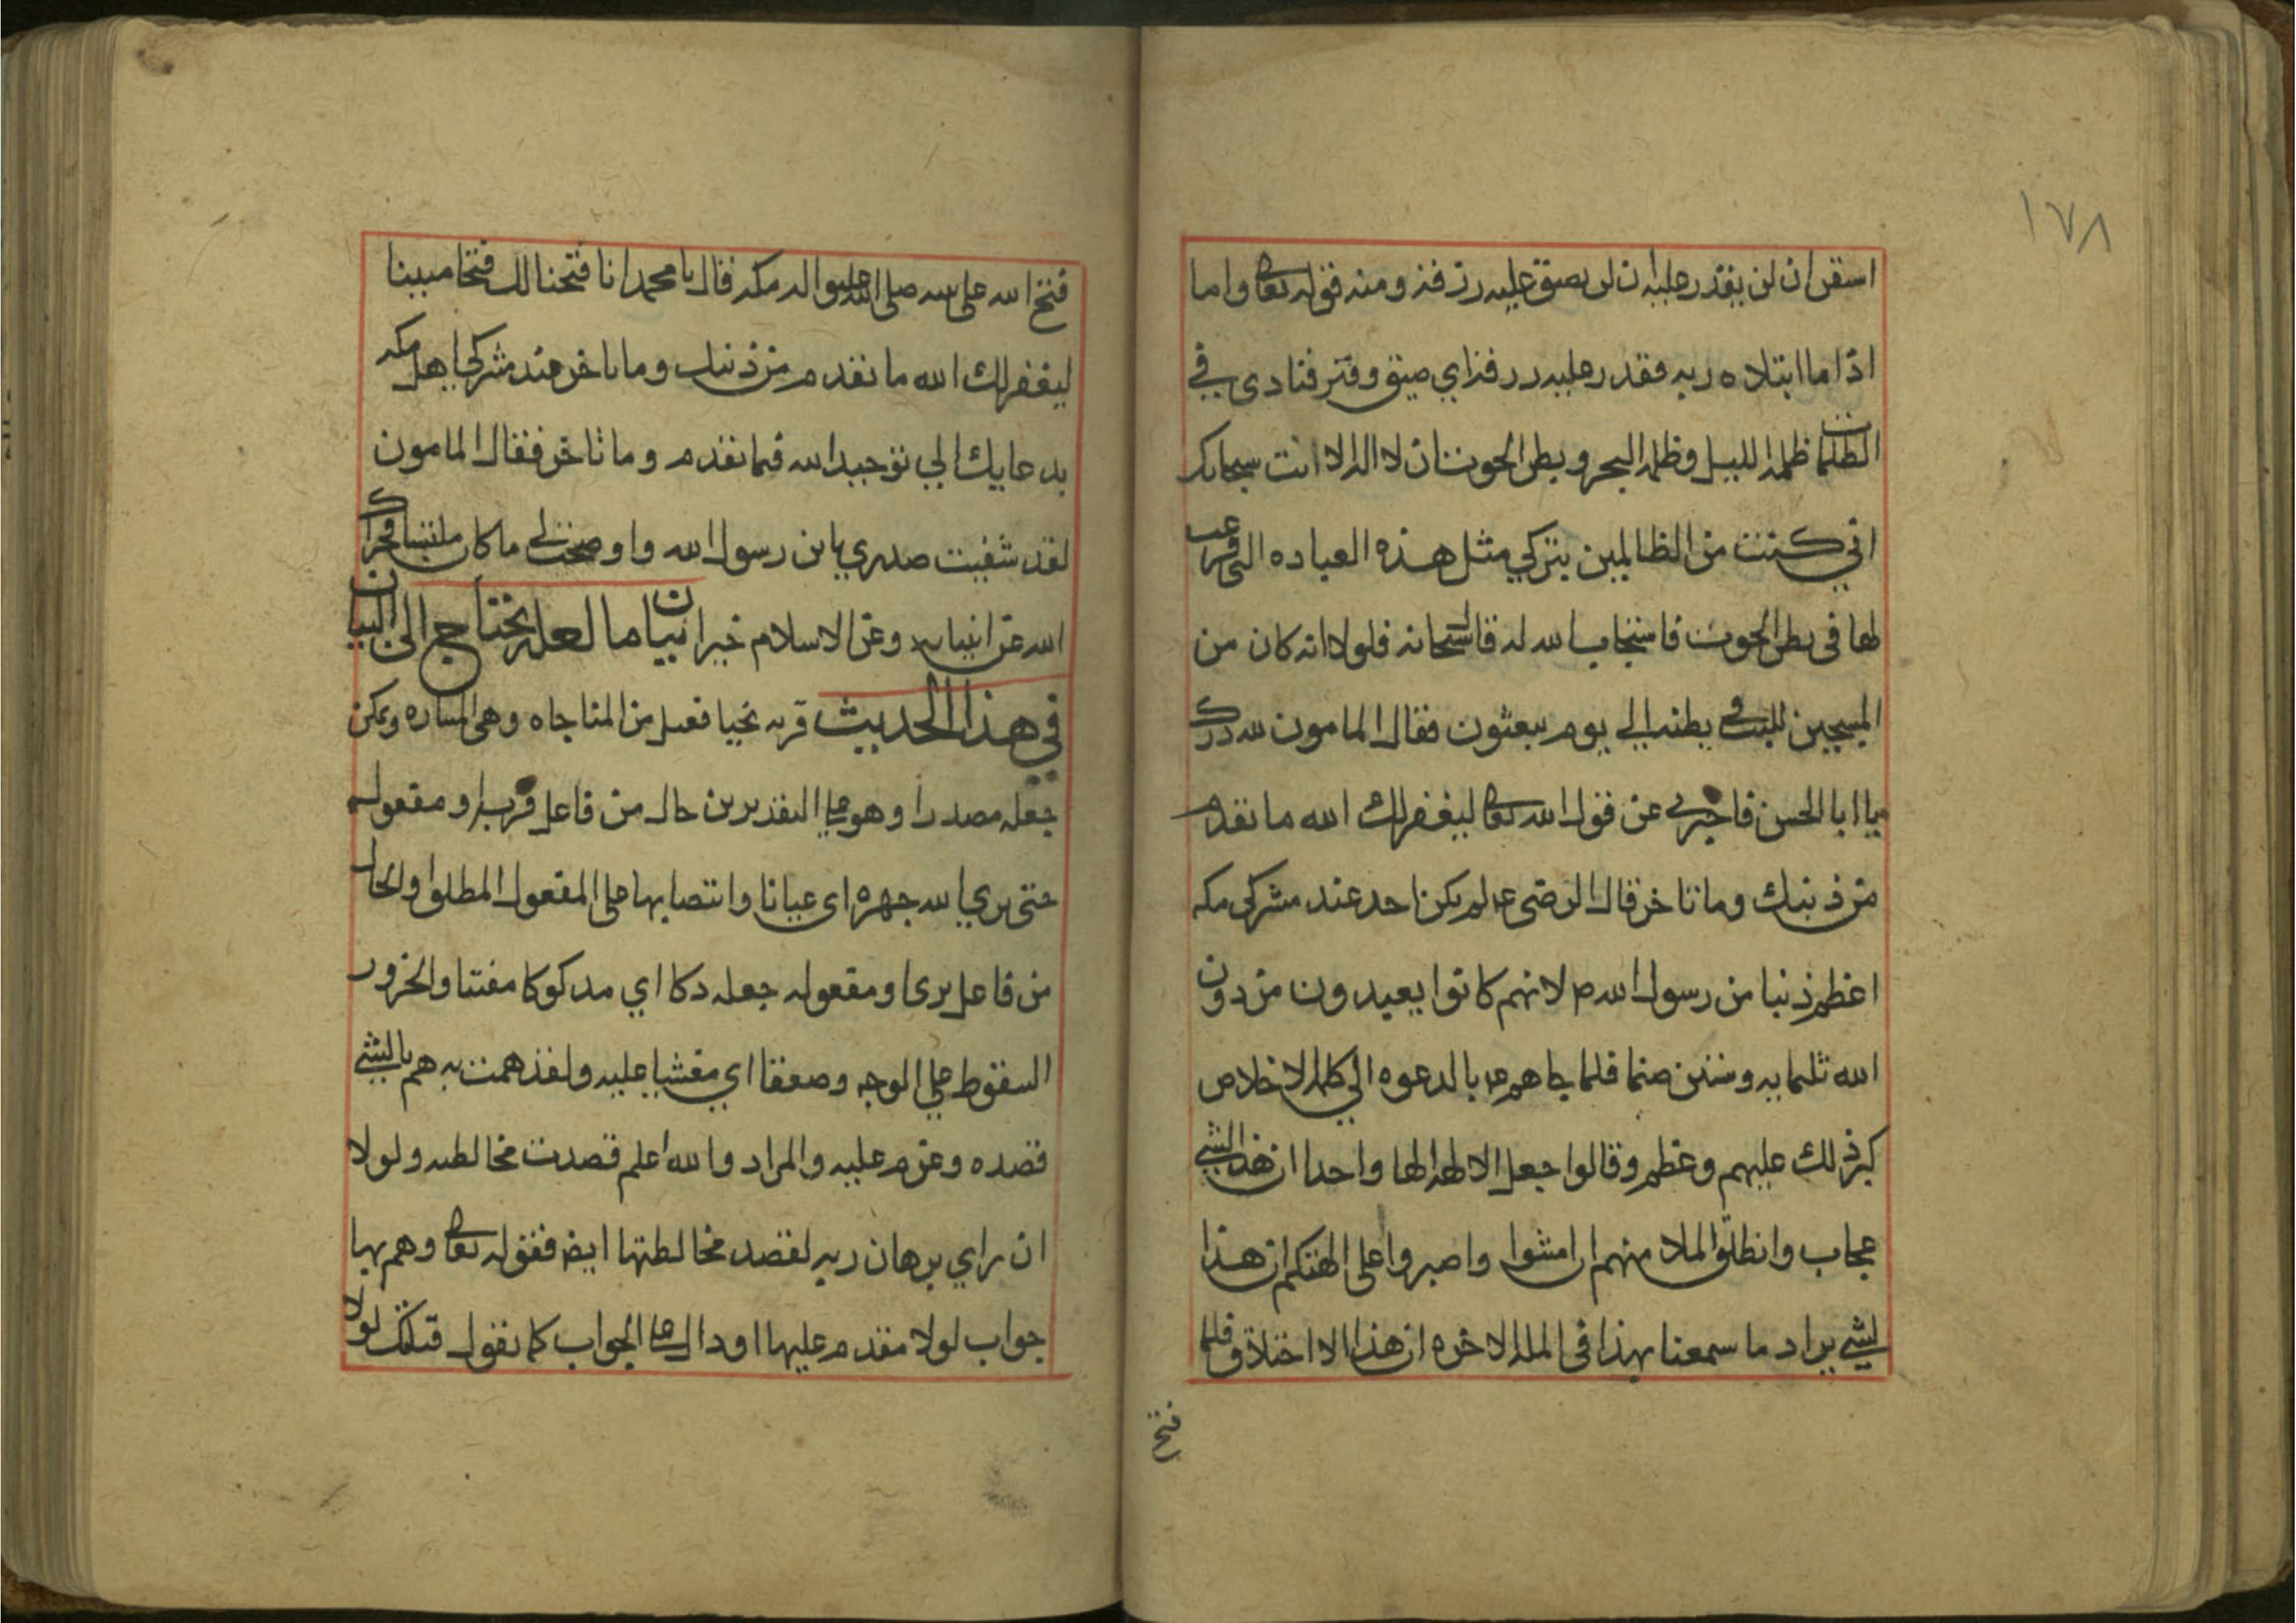 ١٧٨
استقن ان لن يقدر عليه ان لن يضيق عليه رزقه ومنه قوله تعالى واما
اذا ما ابتلاه ربه فقدر عليه رزقه اي ضيق وقتر فنادى في
الظلمات ظلمه الليل وظلمه البحر وبطن الحوت ان لا اله الا انت سبحانك
اني كنت من الظالمين بتركي مثل هذه العباده التي فرغت
لها في بطن الحوت فاستجاب الله له قال سبحانه فلولا انه كان من
المسبحين للبث في بطنه الي يوم يبعثون فقال المامون لله درك
يا ابا الحسن فاخبرني عن قول الله تعالى ليغفر لك الله ما تقدم
من ذنبك وما تاخر قال الرضى ع لم يكن احد عند مشركي مكه
اعظم ذنبا من رسول الله ص لانهم كانوا يعبدون من دون
الله ثلثمايه وستين صنما فلما جاهم ع بالدعوه الي كلمه الاخلاص
كبر ذلك عليهم وعظم وقالوا جعل الالهه الها واحدا ان هذا لشئ
عجاب وانطلق الملا منهم ان امشوا واصبروا على الهتكم ان هذا
لشئ يراد ما سمعنا بهذا في المله الاخره ان هذا الا اختلاق فلما
فتح
فتح الله على نبيه صلى الله عليه واله مكه قال يا محمد انا فتحنا لك فتحا مبينا
ليغفر لك الله ما تقدم من ذنبك وما تاخر عند مشركي اهل مكه
بدعايك الي توحيد الله فيما تقدم وما تاخر فقال المامون
لقد شفيت صدري يابن رسول الله واوضحت لي ما كان ملتبسا فجزاك
الله عن انبيايه وعن الاسلام خيرا بيان ما لعله يحتاج الى البيان
في هذا الحديث قربه نجيا فعيل من المناجاه وهي المساره ويمكن
جعله مصدرا وهو على التقديرين حال من فاعل قرب او مفعوله
حتى نرى الله جهره اي عيانا وانتصابها على المفعول المطلق او الحال
من فاعل نرى او مفعوله جعله دكا اي مدكوكا مفتتا والخرور
السقوط على الوجه وصعقا اي مغشيا عليه ولقد همت به هم بالشئ
قصده وعزم عليه والمراد والله اعلم قصدت مخالطته ولولا
ان راي برهان ربه لقصد مخالطتها ايض فقوله تعالى وهم بها
جواب لولا مقدم عليها او دال على الجواب كما تقول قتلتك لولا